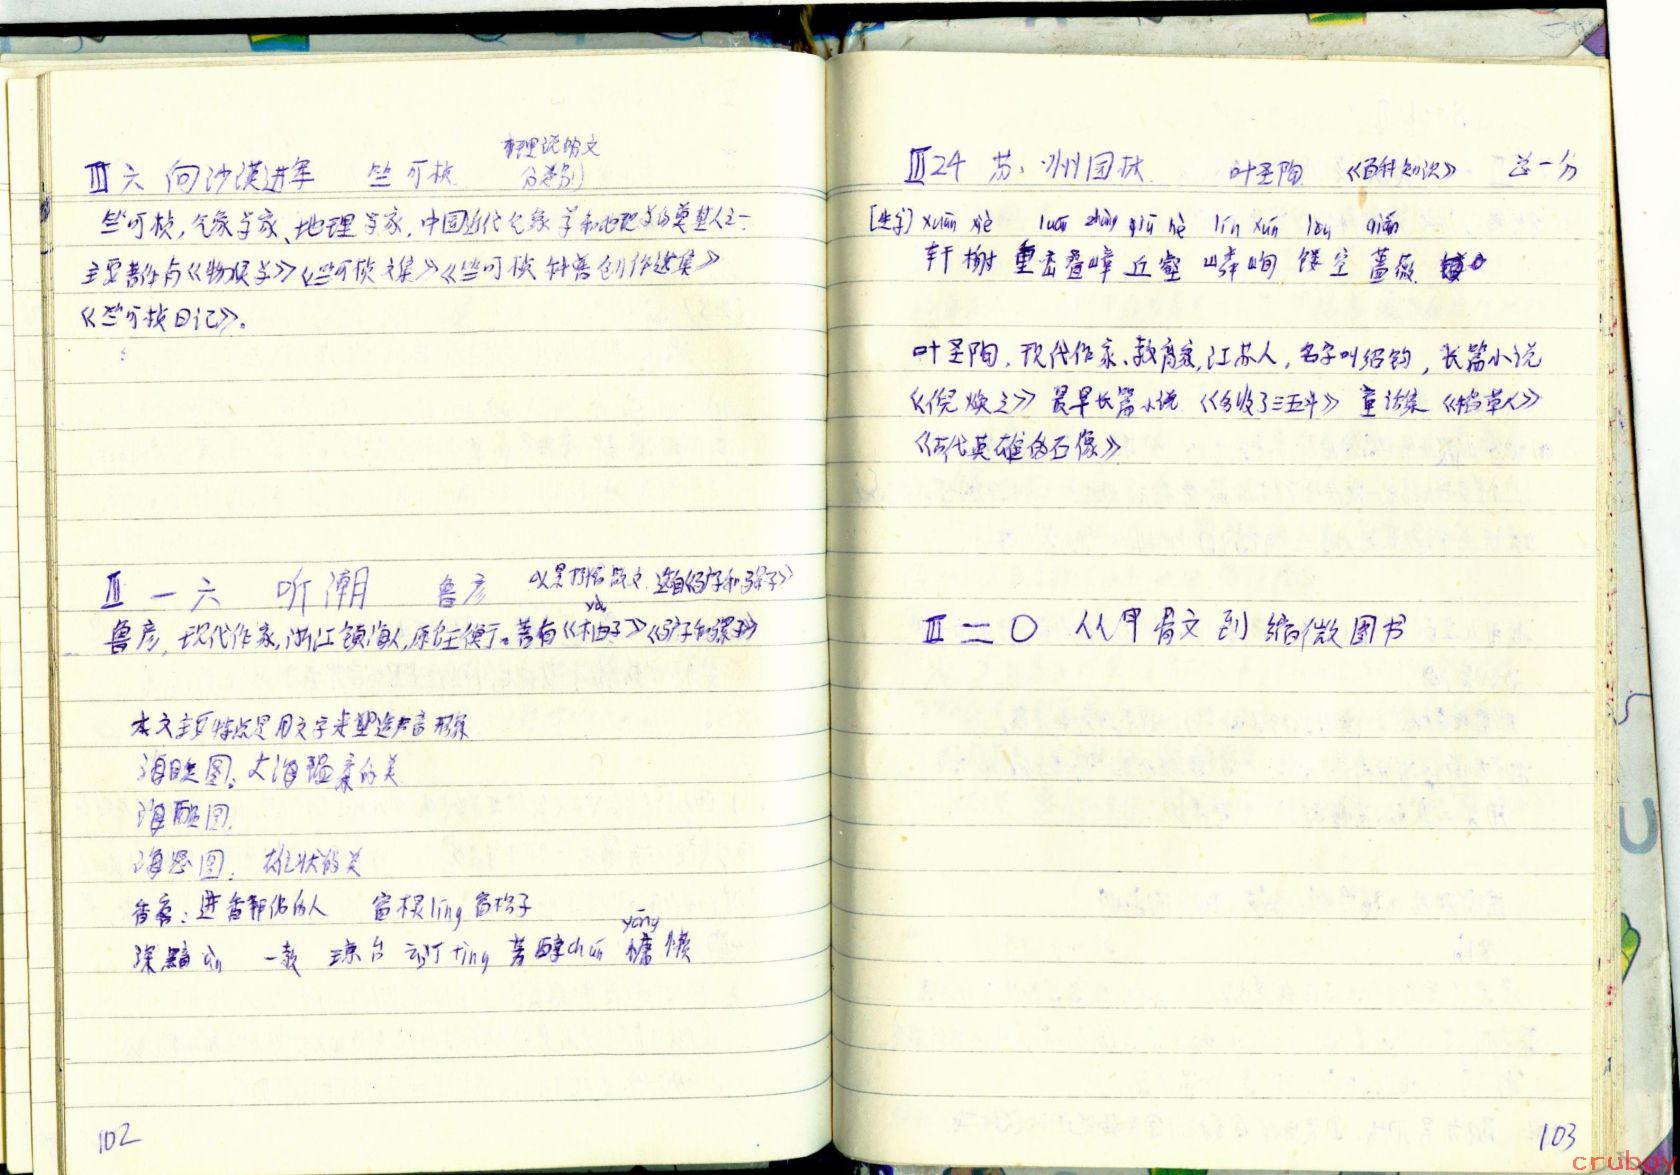 事理说明文
Ⅲ六 向沙漠进军 竺可桢 (分类别)
竺可桢,气象学家、地理学家,中国近代气象学和地理学的奠基人之一
主要著作有《物候学》《竺可桢文集》《竺可桢科普创作选集》
《竺可桢日记》。
Ⅲ 一六 听潮 鲁彦 选自《驴子和骡子》
yòu
鲁彦,现代作家,浙江镇海人,原名王衡。著有《柚子》《驴子和骡子》
本文主要特点是用文字来塑造声音形象
海睡图:大海温柔的美
海醒图.
海怒图: 雄壮的美
香客:进香拜佛的人 窗棂líng窗格子
yōng
深黯àn 一款 琼台 玎tīng 芳醇chún 慵懒
102
Ⅲ24 苏州园林 叶圣陶 《百科知识》 总一分
[生字] xuān xiè luán zhàng qiū hè lín xún lòu qiáng
轩榭 重峦叠嶂 丘壑 嶙峋 镂空 蔷薇
叶圣陶,现代作家、教育家,江苏人,名字叫绍钧,长篇小说
《倪焕之》最早长篇小说《多收了三五斗》童话集《稻草人》
《古代英雄的石像》
Ⅲ 二〇 从甲骨文到缩微图书
103
cruboy